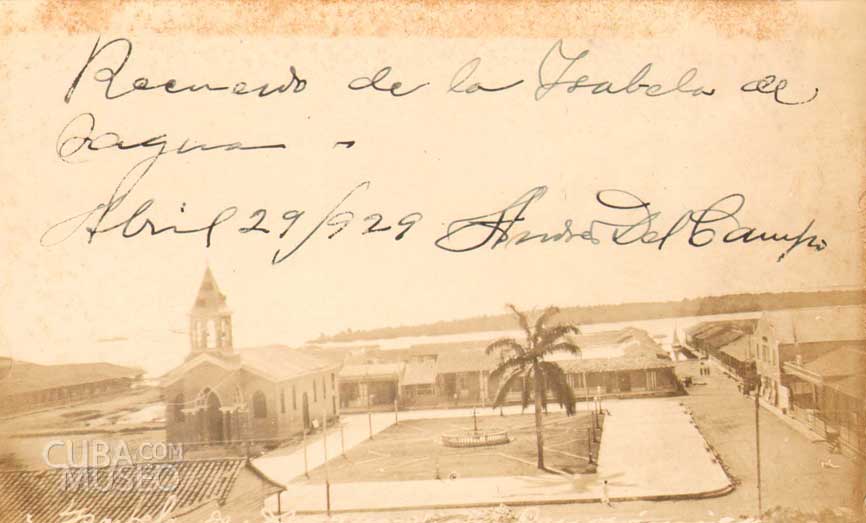 Recuerdo de la Isabela de
Sagua -
Abril 29/929 Andrés Del Campo
CUBA.COM
MUSEO